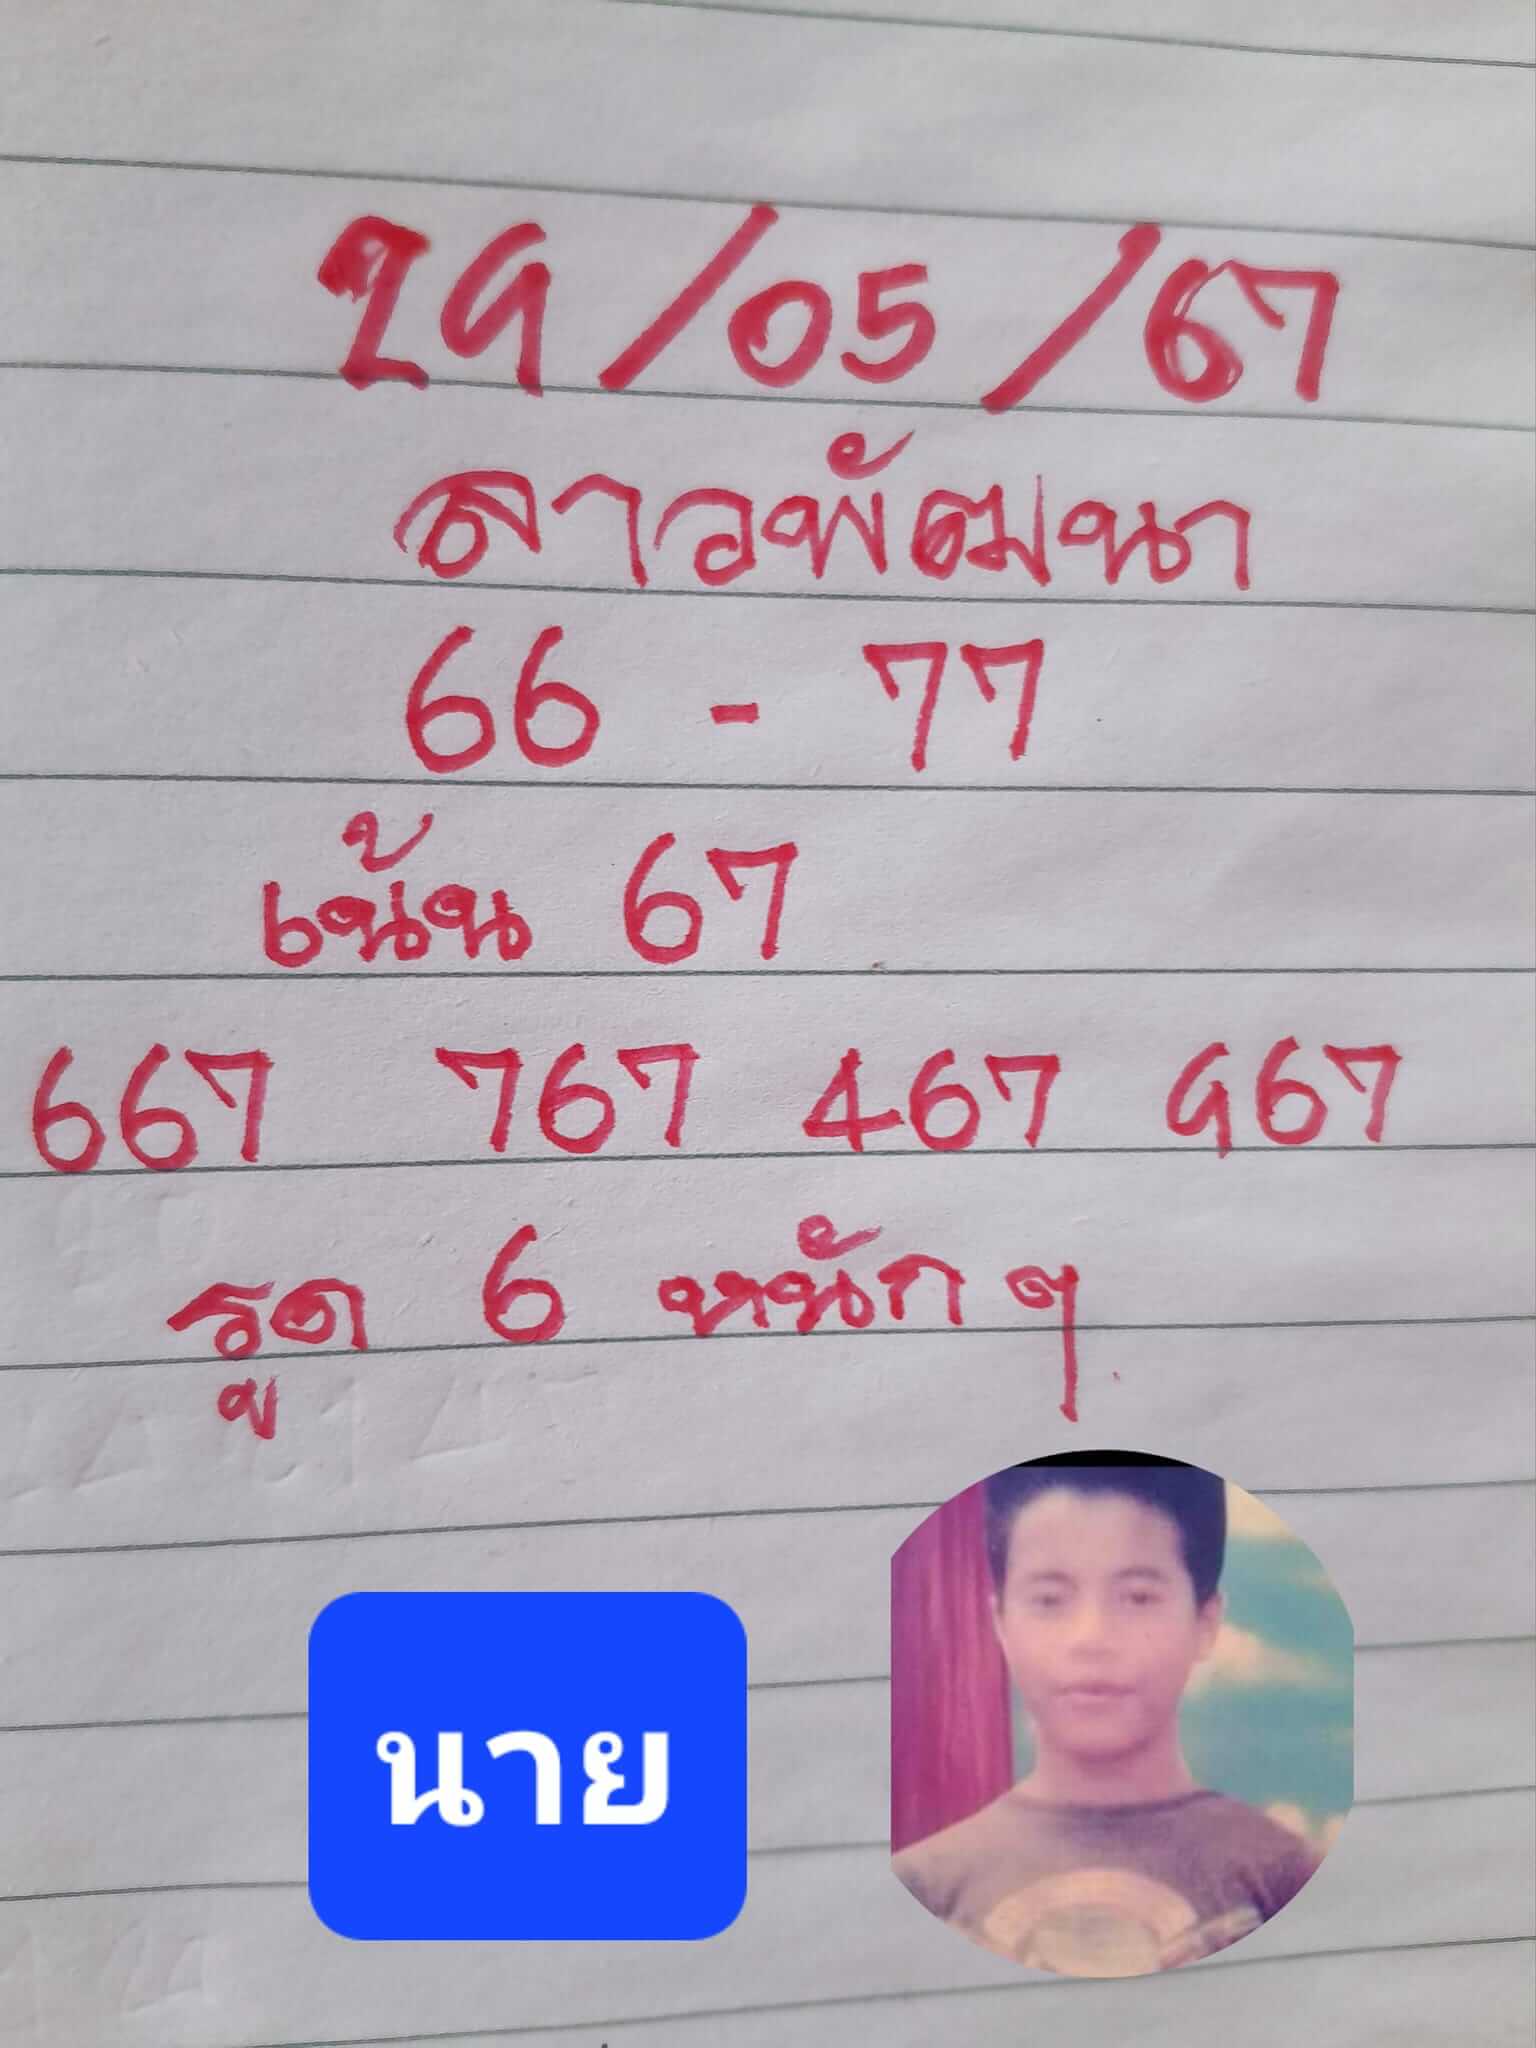 29/05/67
ลาวพัฒนา
66 - 77
เน้น 67
667 767 467 967
รูด 6 หนักๆ
นาย